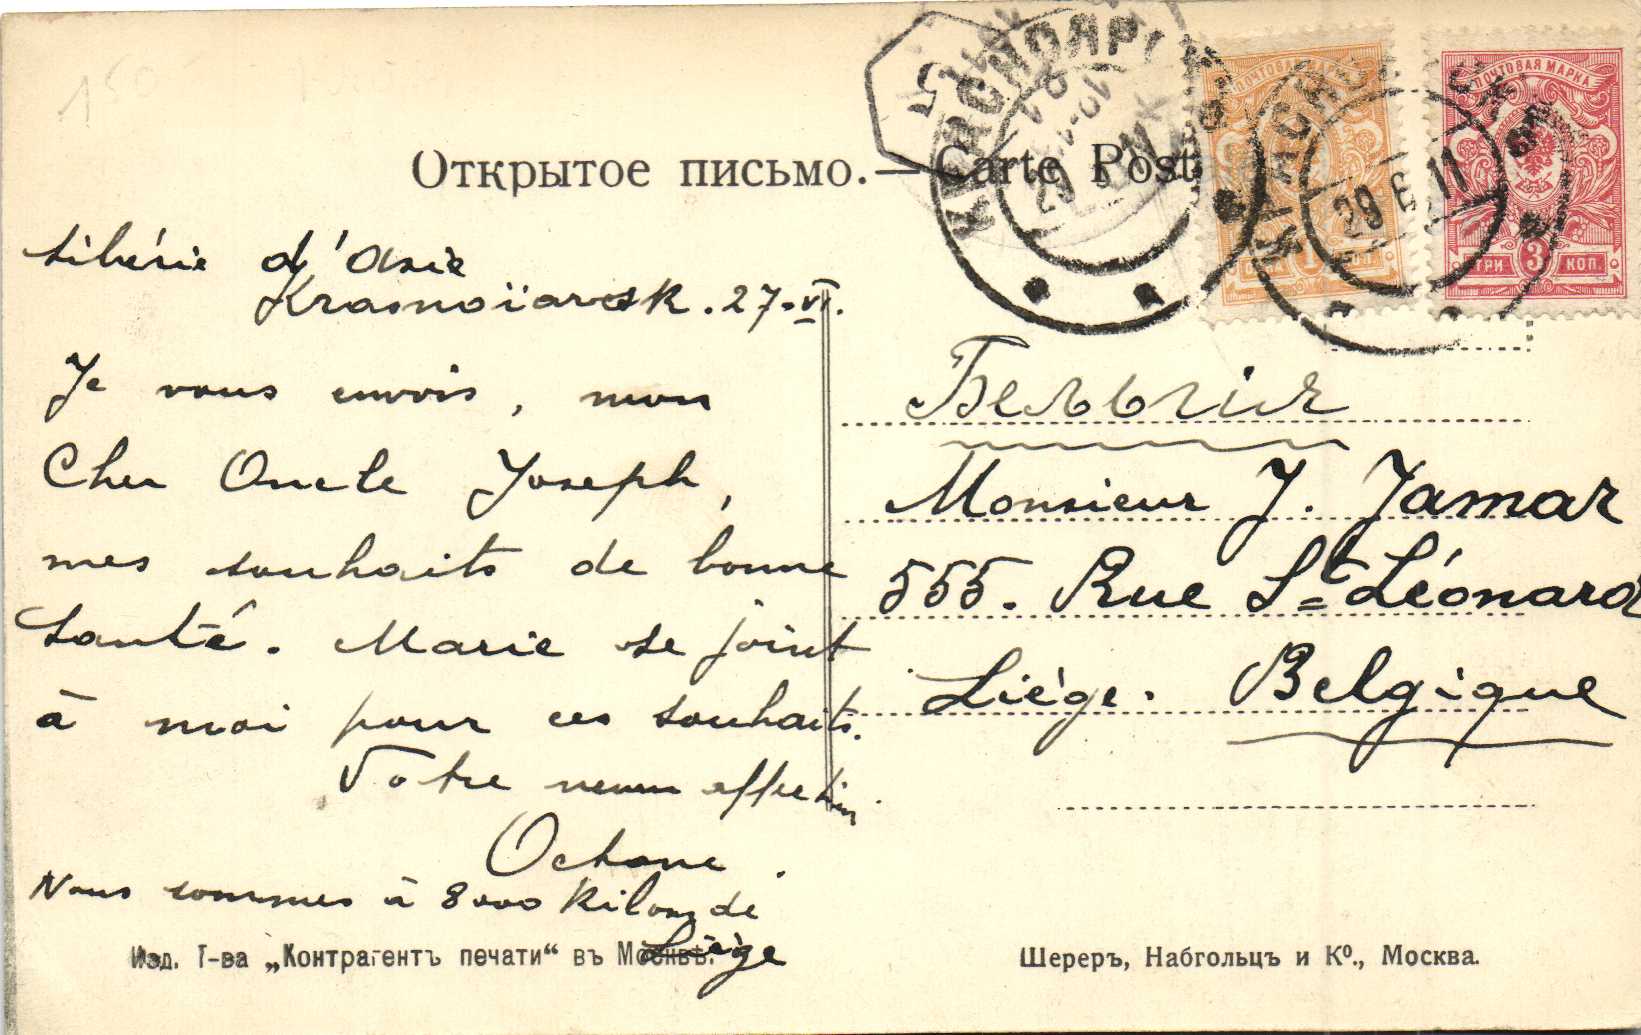 150
Открытое письмо. — Carte Post
КРАСНОЯРСК
29 6 11
ПОЧТОВАЯ МАРКА
1 КОП.
ПОЧТОВАЯ МАРКА
ТРИ 3 КОП.
Sibérie d'Asie
Krasnoïarsk. 27-VI.
Je vous envois, mon
Cher Oncle Joseph,
mes souhaits de bonne
santé. Marie se joint
à moi pour ces souhaits.
Votre neveu affection
Octave.
Nous sommes à 8000 Kilom de
Liège
Бельгія
Monsieur J. Jamar
555. Rue St Léonard
Liège. Belgique
Изд. Т-ва „Контрагентъ печати“ въ Москвѣ.
Шереръ, Набгольцъ и Ко., Москва.